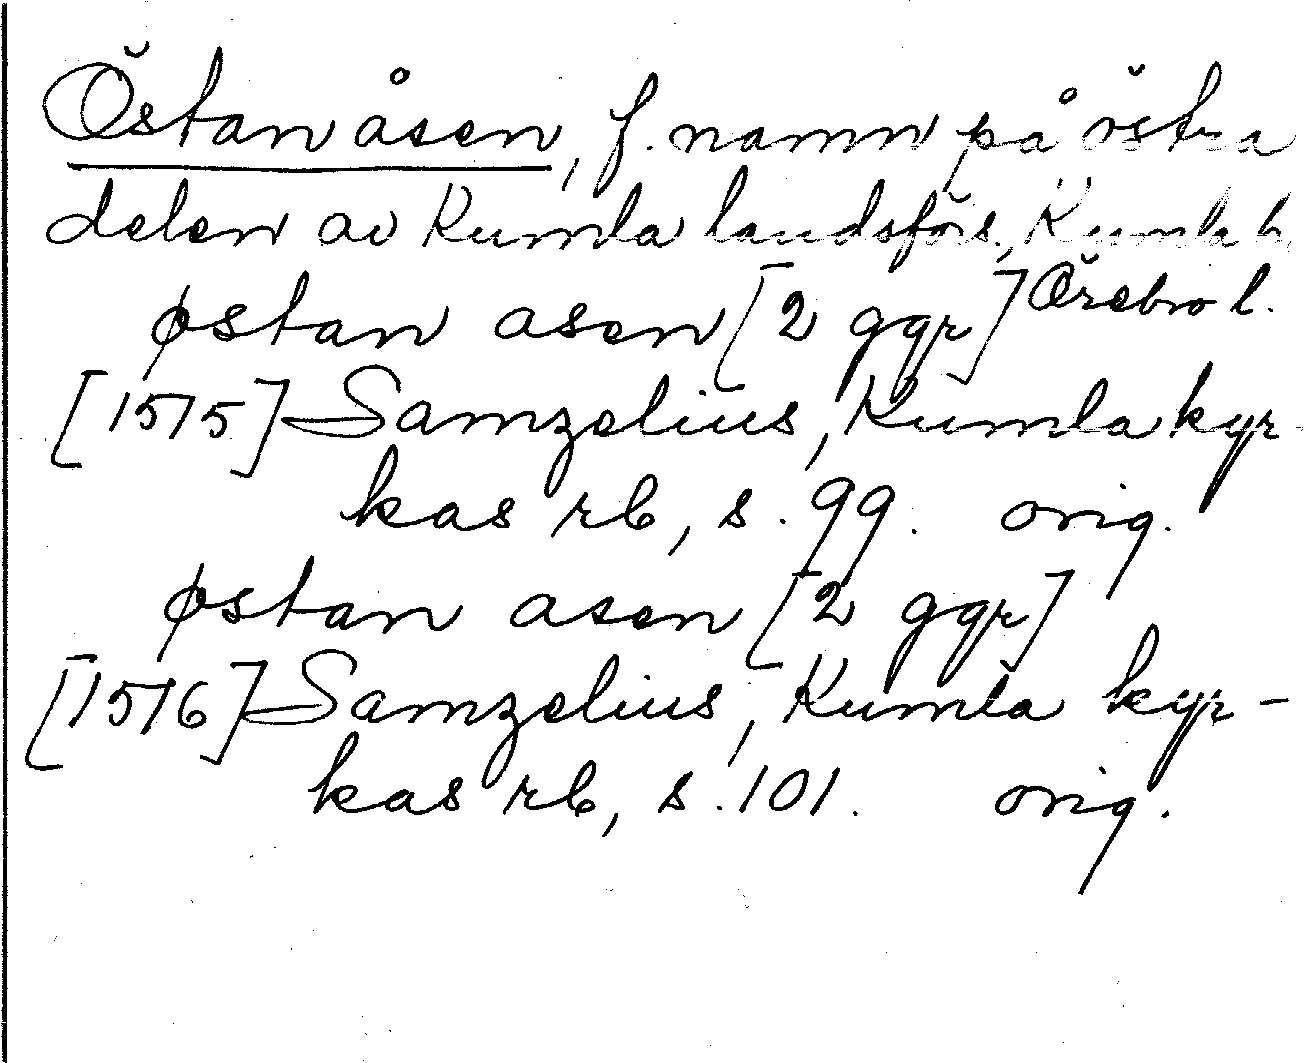 Östan åsen, f. namn på östra
delen av Kumla landsförs., Kumla h.
østan asen [2 ggr] Örebro l.
[1575] Samzelius, Kumla kyr-
kas rb, s. 99. orig.
østan asen [2 ggr]
[1576] Samzelius, Kumla kyr-
kas rb, s. 101. orig.